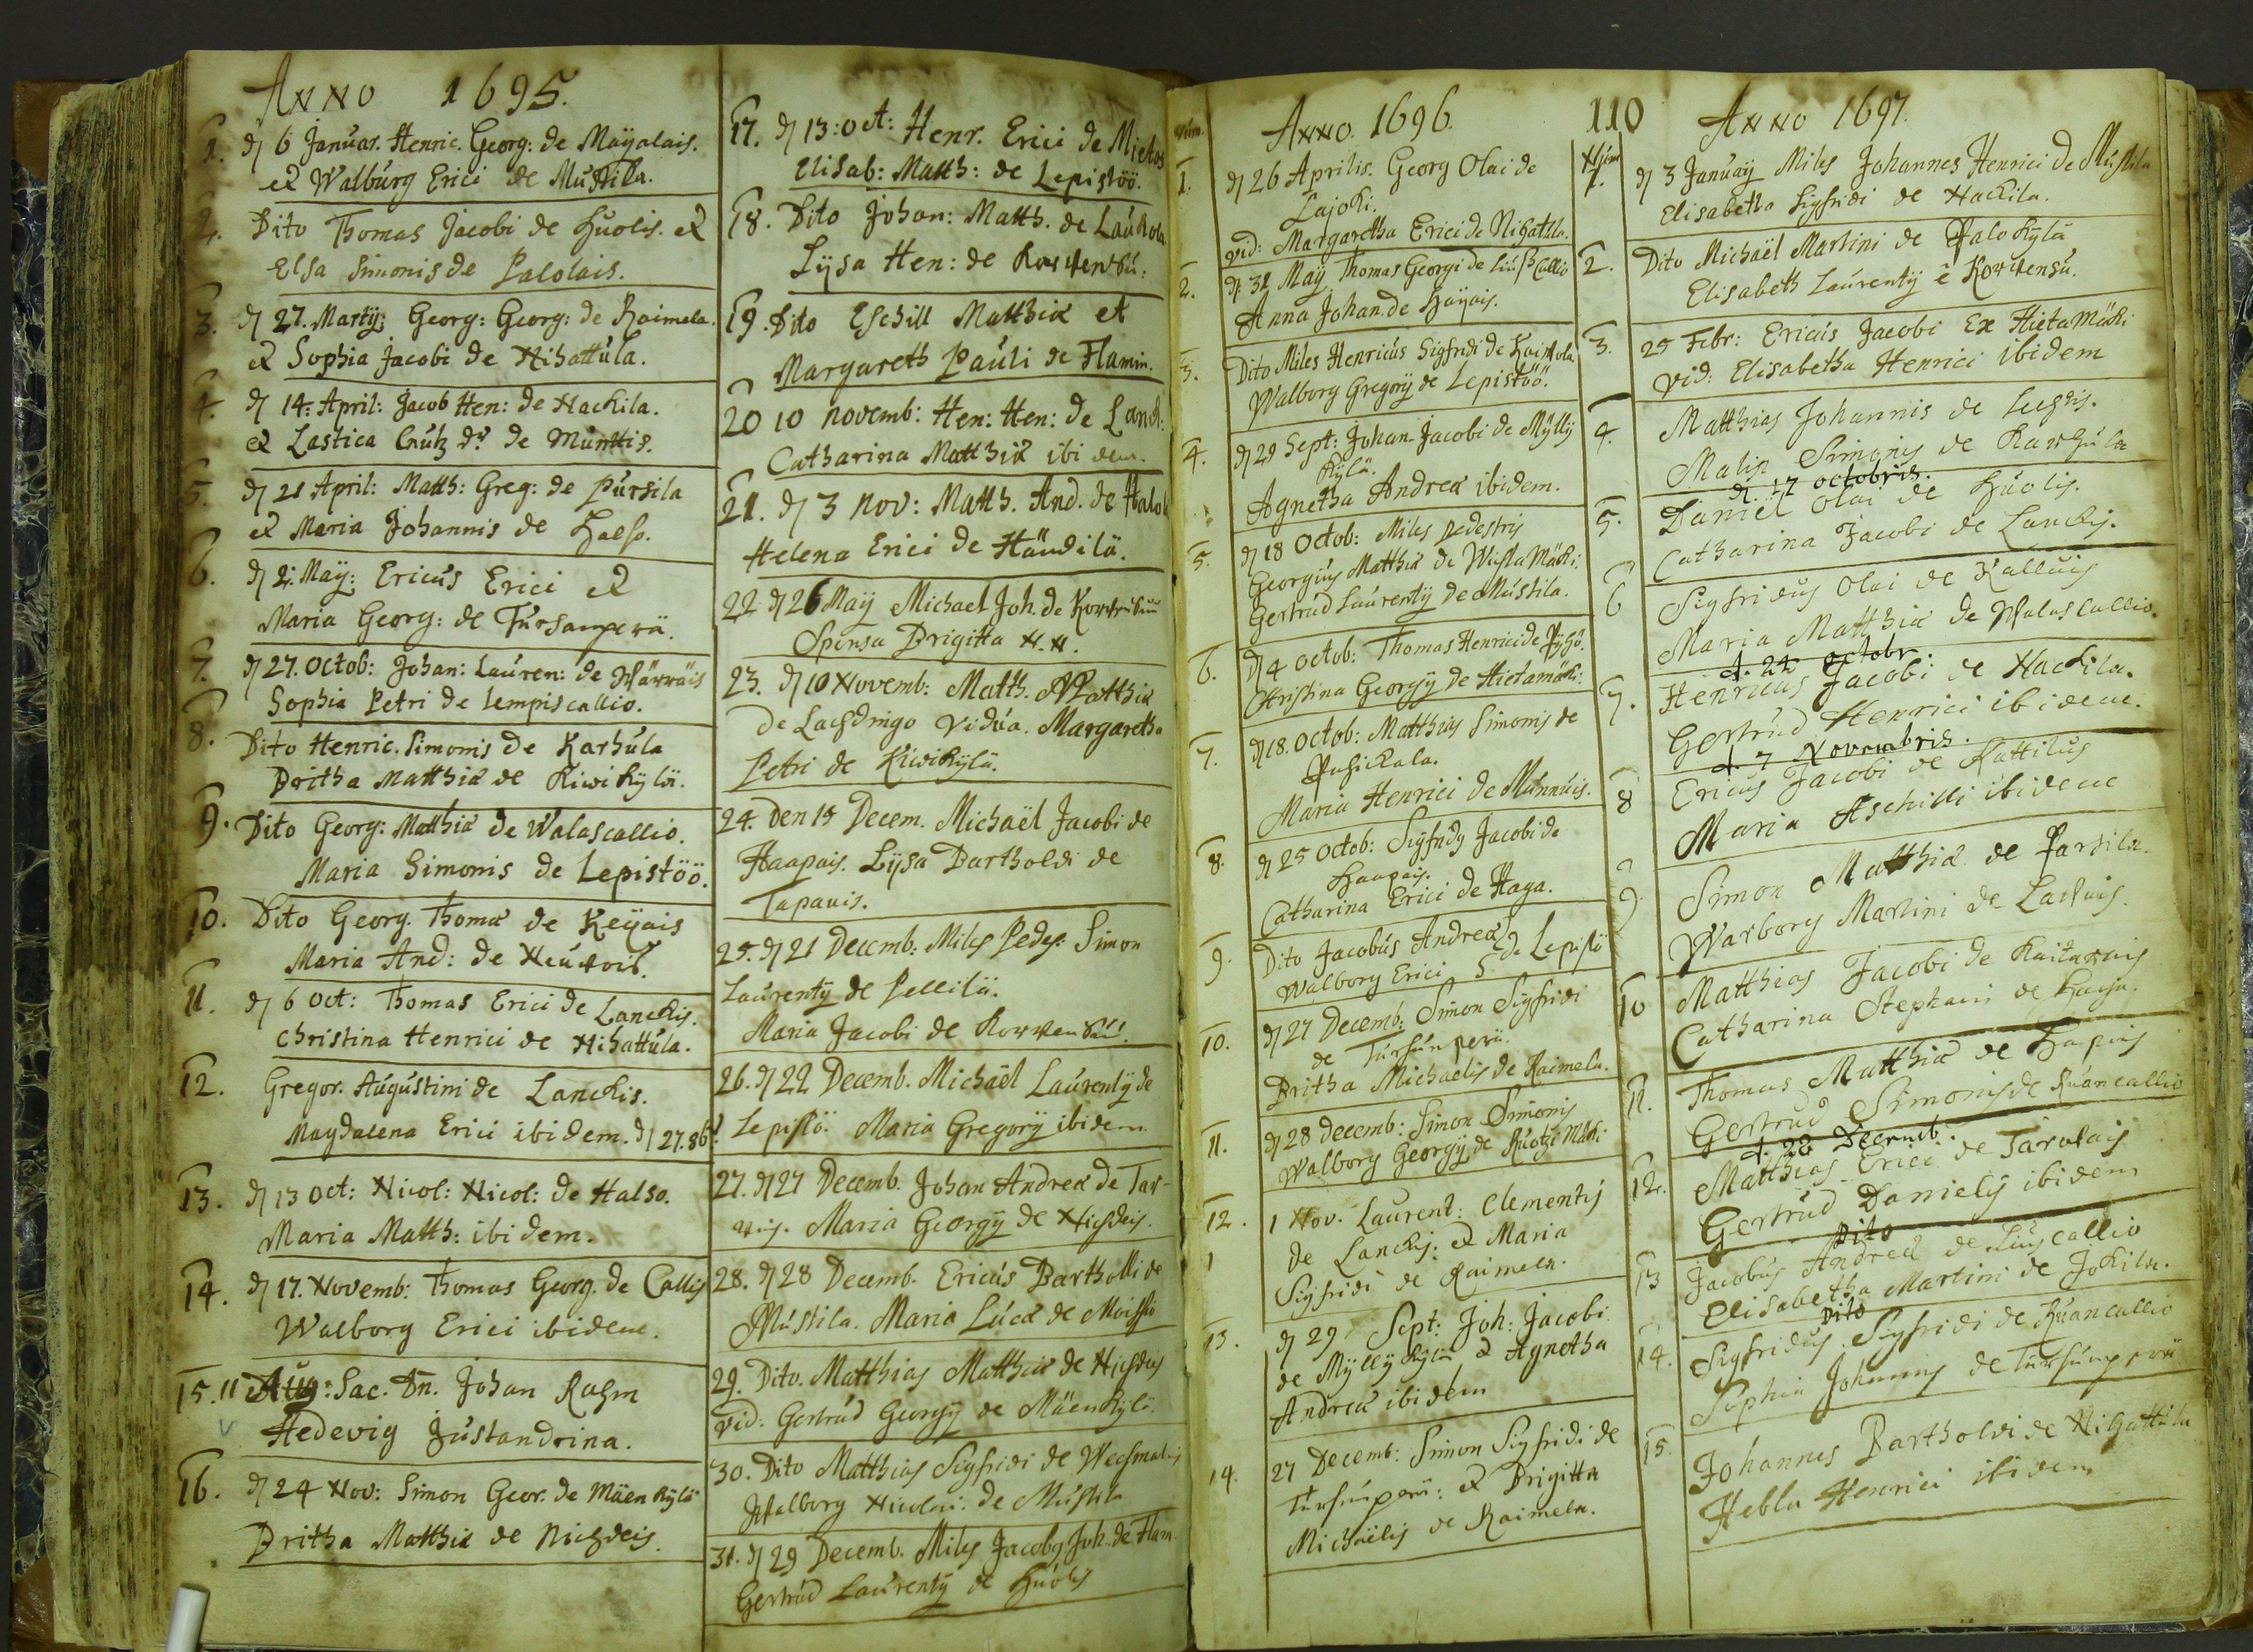 Anno 1695.
1. d 6 Januar. Henric. Georg: de Mayalais.
et Walburg Erici de Mustila.
2. Dito Thomas Jacobi de Huolis. et
Elsa Simonis de Palolais.
3. d 27. Martij: Georg: Georg: de Raimela.
et Sophia Jacobi de Nihattula.
4. d 14: April: Jacob Hen: de Nackila.
et Lastica de Munttis.
5. d 21 April: Matth: Greg: de Pursila
et Maria Johannis de Halso.
6. d 2. Maij: Ericus Erici et
Maria Georg: de Tursamperä.
7. d 27. Octob: Johan: Lauren: de Wärräis
Sophia Petri de Lempiscallio.
8. Dito Henric. Simonis de Karhula
Britha Matthiæ de Kiwikylä.
9. Dito Georg: Matthiæ de Walascallio.
Maria Simonis de Lepistöö.
10. Dito Georg. Thomæ de Keijais
Maria And: de
11. d 6 Oct: Thomas Erici de Lanckis.
Christina Henrici de Nihattula.
12. Gregor. Augustini de Lanckis.
Magdalena Erici ibidem. d 27. 8b.
13. d 13 Oct: Nicol: Nicol: de Halso.
Maria Matth: ibidem.
14. d 17. Novemb: Thomas Georg. de Callis
Walborg Erici ibidem.
15. 11 Aug: Sac. Dn. Johan Rahm
Hedevig Justandrina.
16. d 24 Nov: Simon Geor. de Mäenkylä
Britha Matthiæ de Nichdeis.
17. d 13: Oct: Henr. Erici de Mietois
Elisab: Matth: de Lepistöö.
18. Dito Johan: Matth. de Laukola
Lijsa Hen: de Korwensu:
19. Dito Eschill Matthiæ et
Margareth Pauli de Flamin.
20 10 Novemb: Hen: Hen: de Lanck:
Catharina Matthiæ ibidem.
21. d 3 Nov: Matth. And. de
Helena Erici de Händilä.
22 d 26 Maij Michael Joh. de
Sponsa Brigitta N.N.
23. d 10 Novemb: Matth. Matthiæ
de Lachdingo vidua. Margaretha
Petri de Kiwikylä.
24. Den 15 Decem. Michaël Jacobi de
Haapais. Lijsa Bartholdi de
Tapanis.
25. d 21 Decemb: Miles Pedes: Simon
Laurentij de Pellilä.
Maria Jacobi de Korwensuu.
26. d 22 Decemb. Michaël Laurentij de
Lepistö. Maria Gregorij ibidem.
27. d 27 Decemb. Johan Andreæ de Tar-
wis. Maria Georgij de Nichdeis.
28. d 28 Decemb. Ericus Bartholli de
Mustila. Maria Lucæ de Moisio
29. Dito. Matthias Matthiæ de Nichdeis
Vid: Gertrud Georgij de Mäenkylä.
30. Dito Matthias Sigfridi de Wechmalis
Walborg Nicolai de Mustila
31. d 29 Decemb. Miles Jacobg Joh. de Flam.
Gertrud Laurentij de Huolis
Anno. 1696.
1. d 26 Aprilis. Georg Olai de
Lajoki.
vid: Margaretha Erici de Nihattla.
2. d. 31 Maij Thomas Georgi de Liuscallio
Anna Johan. de Haijais.
3. Dito Miles Henricus Sigfridi de Kaistola
Walborg Gregorij de Lepistöö.
4. d 29 Sept: Johan. Jacobi de Mylly
Kylä.
Agnetha Andreæ ibidem.
5. d 18 Octob: Miles pedestris
Georgius Matthiæ de WiestaMäki.
Gertrud Laurentij de Mustila.
6. d 4 Octob: Thomas Henrici de
Christina Georgij de Hietamäki.
7. d 18. Octob: Matthias Simonis de
Puhickala.
Maria Henrici de Munnuis.
8. d 25 Octob: Sigfridg Jacobi de
Haapais.
Catharina Erici de Haga.
9. Dito Jacobus Andreæ
Walborg Erici de Lepistö
10. d 27 Decemb: Simon Sigfridi
de Tursunperä.
Britha Michaelis de Raimela.
11. d 28 Decemb: Simon Simonis
Walborg Georgij de RuotziMäki
12. 1 Nov. Laurent: Clementis
de Lanckis: et Maria
Sigfridi de Raimela.
13. d 29 Sept: Joh: Jacobi
de Myllykylä et Agnetha
Andreæ ibidem
14. 27 Decemb: Simon Sigfridi de
Tursunperä: et Brigitta
Michaëlis de Raimela.
110
Anno 1697.
1. d 3 Januarij Miles Johannes Henrici de Mustila
Elisabetha Sigfridi de Nackila.
2. Dito Michaël Martini de Palokylä
Elisabeth Laurentij è Korwensu.
3. 25 Febr: Ericus Jacobi Ex HietaMäki
Vid: Elisabetha Henrici ibidem
4. Matthias Johannis de
Malin Simonis de Karhula
d. 17 Octobris.
5. Daniel Olai de Huolis.
Catharina Jacobi de Lanckis.
6 Sigfridus Olai de Kalluis
Maria Matthiæ de Walascallio.
d. 24 Octobr.
7. Henricus Jacobi de Nackila.
Gertrud Henrici ibidem.
d. 7 Novembris.
8 Ericus Jacobi de Kattilus
Maria Aschilli ibidem
9 Simon Matthiæ de Parsila.
Warborg Martini de
10 Matthias Jacobi de
Catharina Stephani de Haga.
11. Thomas Matthiæ de Hapais
Gertrud Simonis de Ruancallio
d. 28 Decemb.
12. Matthias Erici de Tarwais
Gertrud Danielis ibidem
Dito
13 Jacobus Andreæ de Liuscallio
Elisabetha Martini de Jokila.
Dito
14. Sigfridus Sigfridi de Ruancallio
Sophia Johannis de Tursunperä
15. Johannes Bartholdi de Nihattula
Hebla Henrici ibidem